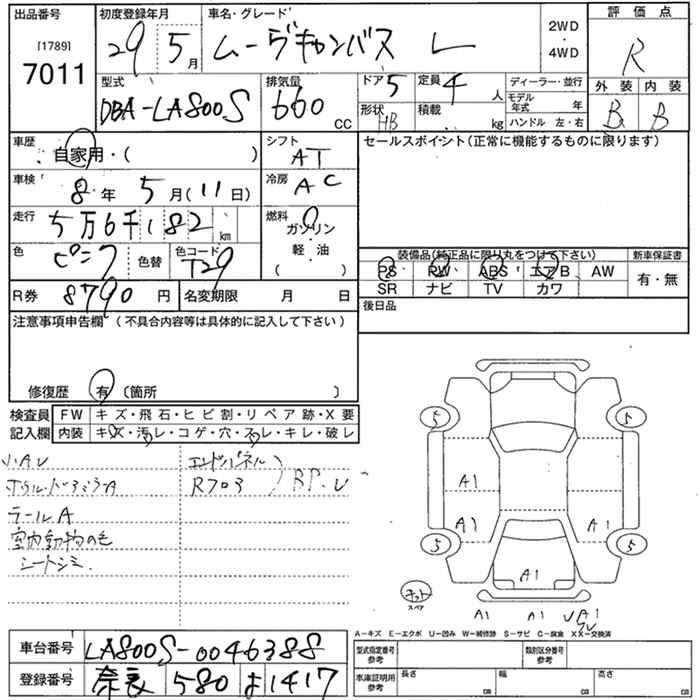 出品番号 初度登録年月 車名・グレード 評価点
[1789]
7011
29 5月 ムーヴキャンバス L 2WD・4WD R
型式 排気量 ドア 5 定員 4人 ディーラー・並行 外装 内装
DBA-LA800S 660cc 形状 HB 積載 kg モデル年式 年 ハンドル 左・右 B B
車歴 自家用・( ) シフト AT セールスポイント(正常に機能するものに限ります)
車検 8年 5月(11日) 冷房 AC
走行 5万6千182km 燃料 ガソリン・軽・油( )
色 ピンク 色替 色コード T29
装備品(純正品に限り丸をつけて下さい) 新車保証書
PS PW ABS エアB AW 有・無
SR ナビ TV カワ
R券 8790円 名変期限 月 日
後日品
注意事項申告欄(不具合内容等は具体的に記入して下さい)
修復歴 有 (箇所 )
検査員記入欄 FW キズ・飛石・ヒビ割・リペア跡・X要
内装 キズ・汚レ・コゲ・穴・スレ・キレ・破レ
小AU エンドパネル
R フロア BP.U
テールA
室内動物の毛
シートシミ.
5 5
A1
A1 A1
5 5
A1
キット
スペア
A1 A1 A1
A―キズ E―エクボ U―凹み W―補修跡 S―サビ C―腐食 XX―交換済
車台番号 LA800S-0046388
型式指定番号 参考 類別区分番号 参考
登録番号 奈良 580 よ 1417
車庫証明用 参考 長さ cm 幅 cm 高さ cm